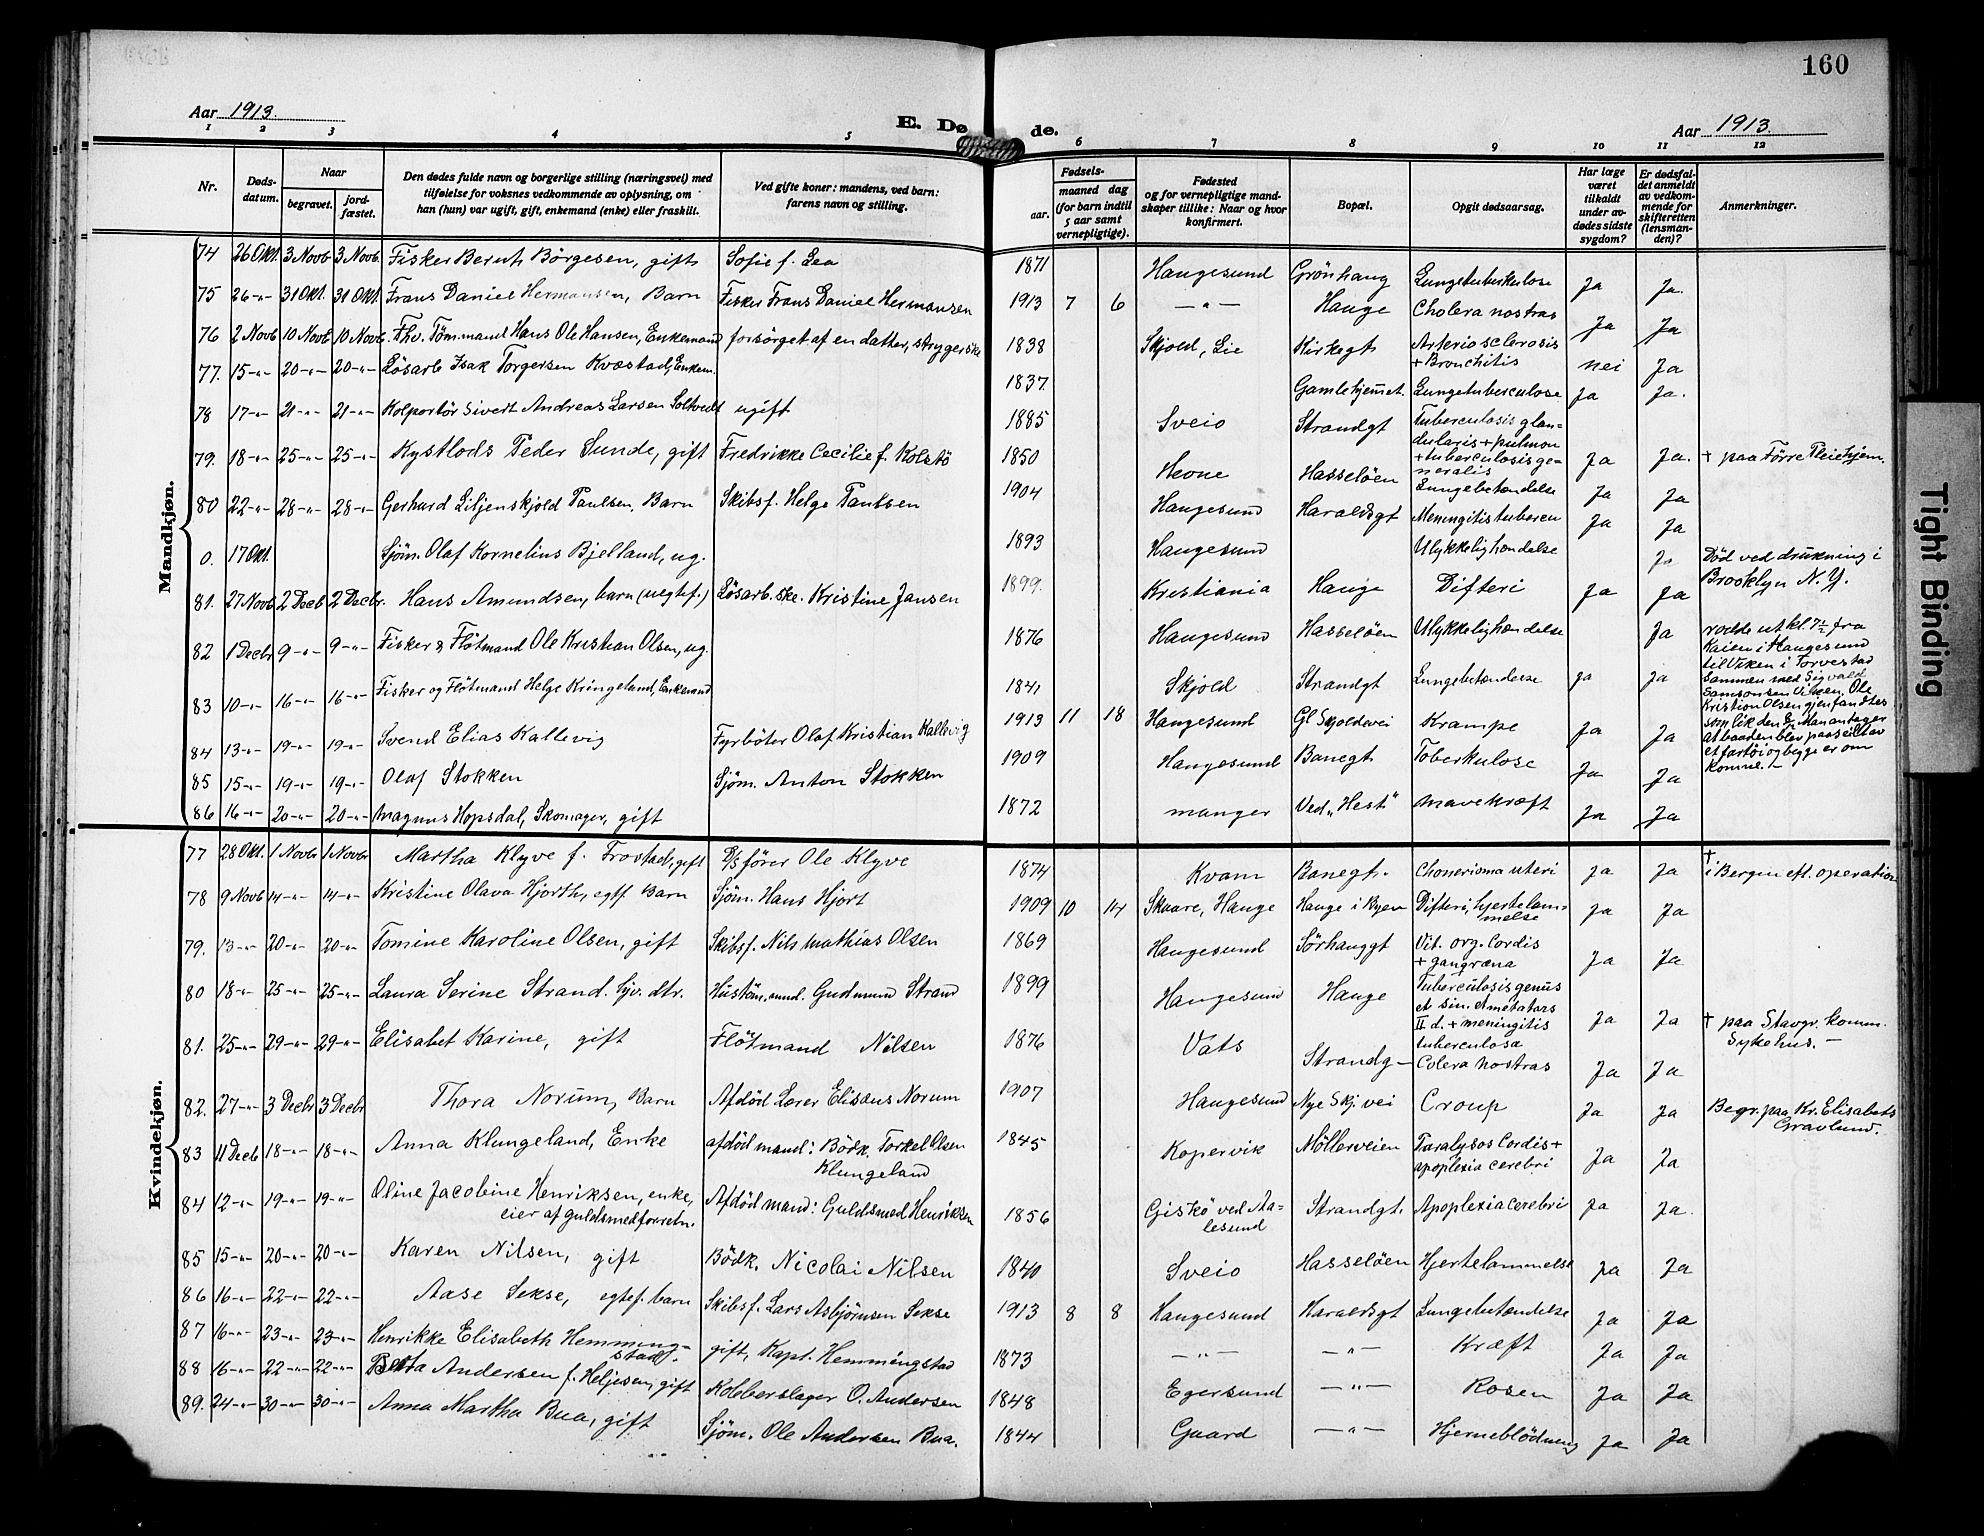 160
Aar 1913.
E. Dø de.
Aar 1913.
1 2 3 4 5 6 7 8 9 10 11 12
Nr.
Døds-datum.
Naar
begravet.
jord-fæstet.
Den dødes fulde navn og borgerlige stilling (næringsvei) med tilføielse for voksnes vedkommende av oplysning, om han (hun) var ugift, gift, enkemand (enke) eller fraskilt.
Ved gifte koner: mandens, ved barn: farens navn og stilling.
Fødsels-
aar.
maaned dag (for barn indtil 5 aar samt vernepligtige).
Fødested og for vernepligtige mandskaper tillike: Naar og hvor konfirmert.
Bopæl.
Opgit dødsaarsag.
Har læge været tilkaldt under avdødes sidste sygdom?
Er dødsfaldet anmeldt av vedkommende for skifteretten (lensmanden)?
Anmerkninger.
Mandkjøn.
74 26 Okt. 3 Novb. 3 Novb. Fisker Bernt Börgesen, gift Sofie f. Lea 1871 Haugesund Grönhaug Lungetuberkulose Ja Ja.
75 26 -"- 31 Okt. 31 Okt. Frans Daniel Hermansen, Barn Fisker Frans Daniel Hermansen 1913 7 6 -"- Hauge Cholera nostras Ja Ja
76 2 Novb 10 Novb 10 Novb. Fhv. Tömmand Hans Ole Hansen, Enkemand forsörget af en datter, strygerske 1838 Skjold, Lie Kirkegt Arteriosclerosis + Bronchitis nei Ja
77. 15 -"- 20 -"- 20 -"- Lösarb. Isak Torgersen Kvæstad, Enkem. 1837. Gamlehjemmet. Lungetuberculose Ja Ja.
78 17 -"- 21 -"- 21 -"- Kolportör Sivert Andreas Larsen Soltvedt ugift 1885 Sveio Strandgt Tuberculosis glandularis + pulmon + tuberculosis generalis Ja Ja. † paa Förre Pleiehjem.
79. 18 -"- 25 -"- 25 -"- Kystlods Peder Sunde, gift Fredrikke Cecilie f. Kolstö 1850 Hasselöen Lungebetændelse Ja Ja
80 22 -"- 28 -"- 28 -"- Gerhard Liljenskjold Paulsen, Barn Skibsf. Helge Paulsen 1904 Haugesund Haraldsgt Meningitis tubercu Ja Ja
0. 17 Okt. Sjöm. Olaf Kornelius Bjelland, ug. 1893 Haugesund Ulykkelig hændelse Ja Död ved drukning i Brooklyn N.Y.
81. 27 Novb 2 Decb 2 Decbr. Hans Amundsen, barn (uegtef.) Lösarb.ske. Kristine Jansen 1899. Kristiania Hauge Difteri Ja Ja
82 1 Decbr 9 -"- 9 -"- Fisker & Flötmand Ole Kristian Olsen, ug. 1876 Haugesund Hasselöen Ulykkelig hændelse Ja rodde ut kl. 7½ fra Kaien i Haugesund til Viken i Torvestad sammen med Sigvald Samsonsen Viken. Ole Kristian Olsen gjenfandtes som lik den 8/12. Man antager at baaden blev paaseilt av et fartöi og begge er omkomne. –
83 10 -"- 16 -"- 16 -"- Fisker og Flötmand Helge Kringeland, Enkemand 1841 Skjold Strandgt Lungebetændelse Ja Ja
84 13 -"- 19 -"- 19 -"- Svend Elias Kallevig Fyrböter Olaf Kristian Kallevig 1913 11 18 Haugesund Gl Skjoldevei Krampe Ja Ja
85 15 -"- 19 -"- 19 -"- Olaf Stokken Sjöm. Anton Stokken 1909 Haugesund Banegt Toberkulose Ja Ja
86 16 -"- 20 -"- 20 -"- Magnus Hopsdal, Skomager, gift 1872 manger Ved „Hest" Mavekræft Ja Ja
Kvindekjøn.
77 28 Okt. 1 Novbr 1 Novbr Martha Klyve f. Frostad, gift D/s förer Ole Klyve 1874 Kvam Banegt. Chonerioma uteri Ja Ja † i Bergen eft. operation
78 9 Novb 14 -"- 14 -"- Kristine Olava Hjorth, egtf. Barn Sjöm. Hans Hjort 1909 10 14 Skaare, Hauge Hauge i Byen Difteri, hjertelammelse Ja Ja
79. 13 -"- 20 -"- 20 -"- Tomine Karoline Olsen, gift Skibsf. Nils Mathias Olsen 1869 Haugesund Sörhauggt Vit. org. Cordis + gangræna Ja Ja
80 18 -"- 25 -"- 25 -"- Laura Serine Strand. hjv. dtr. Hustöm.mnd. Gudmund Strand 1899 Haugesund Hauge Tuberculosis genus et sin. et metatars II d. + meningitis tuberculosa Ja Ja † paa Stavgr. Komm. Sykehus. –
81. 25 -"- 29 -"- 29 -"- Elisabet Karine, gift Flötmand Nilsen 1876 Vats Strandg – Colera nostras Ja Ja
82. 27 -"- 3 Decbr 3 Decbr Thora Norum, Barn Afdöd Lærer Elisæus Norum 1907 Haugesund Nye Skj. vei Croup Ja Ja Begr. paa Kr. Elisabets Gravlund.
83 11 Decb 18 -"- 18 -"- Anna Klungeland, Enke afdöd mand: Bödk. Torkel Olsen Klungeland 1845 Kopervik Möllerveien Paralysos Cordis + apoplexia cerebri Ja Ja
84 12 -"- 19 -"- 19 -"- Oline Jacobine Henriksen, enke, eier af guldsmedforretn. Afdöd mand: Guldsmed Henriksen 1856 Giskö ved Aalesund Strandgt. Apoplexia cerebri Ja Ja.
85 15 -"- 20 -"- 20 -"- Karen Nilsen, gift Bödk. Nicolai Nilsen 1840 Sveio Hasselöen Hjertelammelse Ja Ja
86 16 -"- 22 -"- 22 -"- Aase Sekse, egtef. barn Skibsf. Lars Asbjörnsen Sekse 1913 8 8 Haugesund Haraldsgt Lungebetændelse Ja Ja
87 16 -"- 23 -"- 23 -"- Henrikke Elisabeth Hemmingstad. gift, Kapt. Hemmingstad 1873 -"- -"- Kræft Ja Ja
88 16 -"- 22 -"- 22 -"- Berta Andersen f. Heljesen, gift Kobberslager O. Andersen 1848 Egersund -"- Rosen Ja Ja
89. 24 -"- 30 -"- 30 -"- Anna Martha Bua, gift Sjöm. Ole Andersen Bua. 1844 Gaard -"- Hjerneblödning Ja Ja
Tight Binding